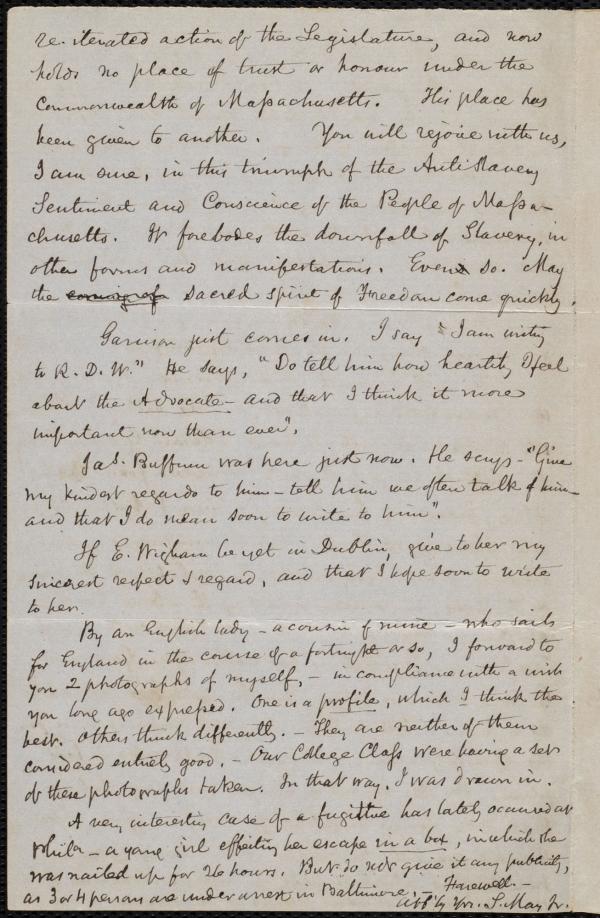 re-iterated action of the Legislature, and now
holds no place of trust or honour under the
Commonwealth of Massachusetts. His place has
been given to another. You will rejoice with us,
I am sure, in this triumph of the Antislavery
Sentiment and Conscience of the People of Massa-
chusetts. It forebodes the downfall of Slavery, in
other forms and manifestations. Even so. May
the coming of a sacred spirit of Freedom come quickly.
Garrison just comes in. I say "I am writing
to R. D. W." He says, "Do tell him how heartily I feel
about the Advocate - and that I think it more
important now than ever".
Jas. Buffum was here just now. He says - "Give
my kindest regards to him - tell him we often talk of him -
and that I do mean soon to write to him".
If E. Wigham be yet in Dublin, give to her my
sincerest respect & regard, and that I hope soon to write
to her.
By an English lady - a cousin of mine - who sails
for England in the course of a fortnight or so, I forward to
you 2 photographs of myself, - in compliance with a wish
you long ago expressed. One is a profile, which I think the
best. Others think differently. - They are neither of them
considered entirely good. - Our College Class were having a set
of these photographs taken. In that way, I was drawn in.
A very interesting case of a fugitive has lately occurred at
Phila - a young girl effecting her escape in a box, in which she
was nailed up for 26 hours. But do not give it any publicity,
as 3 or 4 persons are under arrest in Baltimore. - Farewell. -
Yrs. S. May Jr.